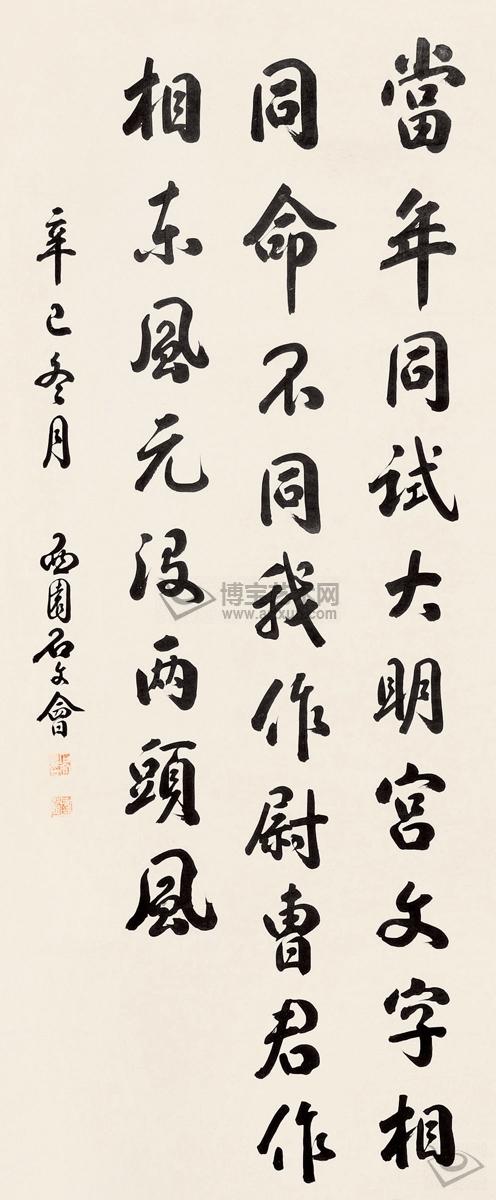 當年同試大明宮文字相
同命不同我作尉曹君作
相東風元没两頭風
辛巳冬月 西園石文會
博宝艺术网
www.artxun.com